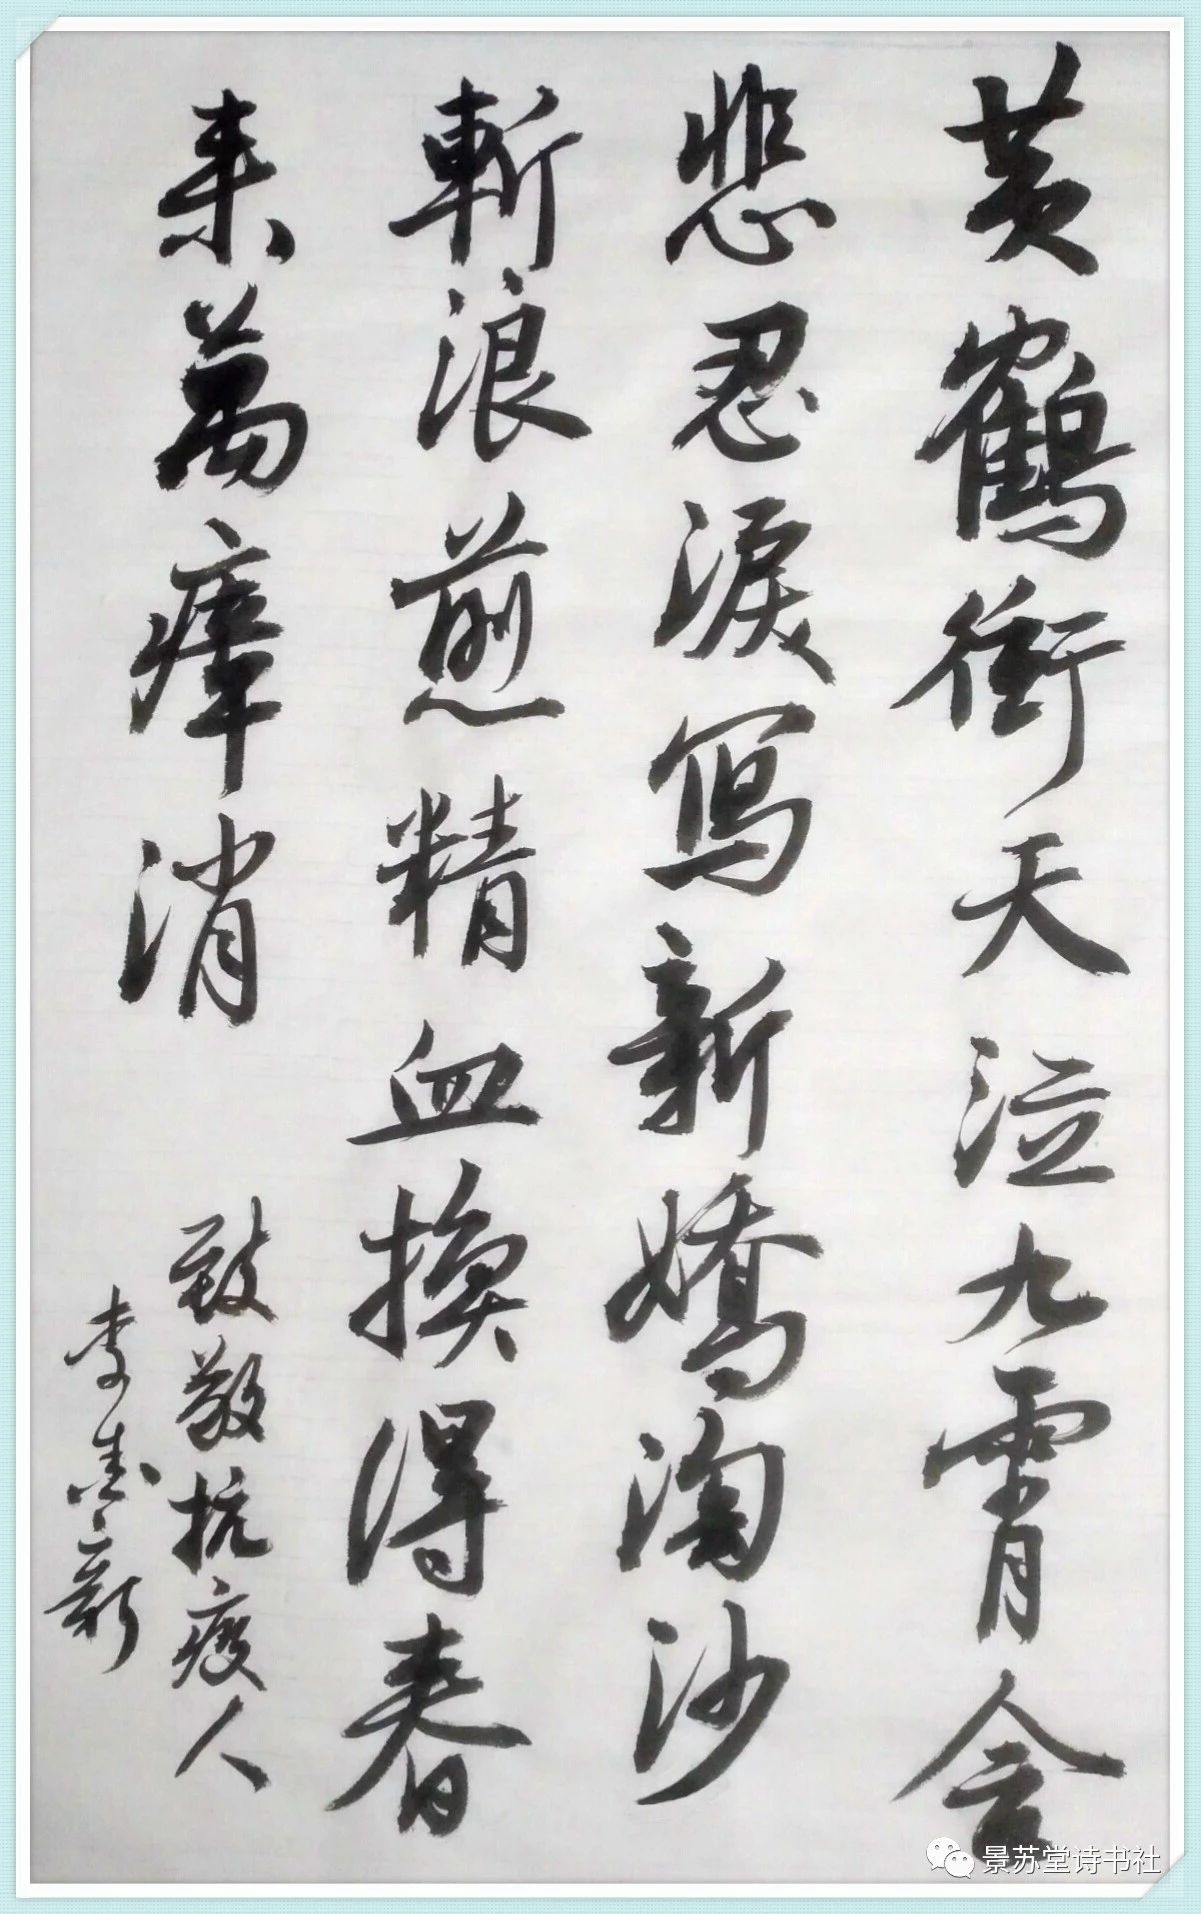 黄鶴衝天泣九霄含
悲忍淚寫新嬌淘沙
斬浪煎精血換得春
来萬瘴消
致敬抗疫人
李新
景苏堂诗书社